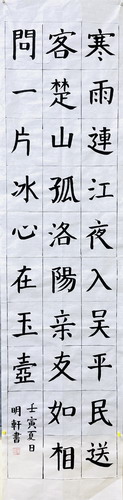 寒雨連江夜入吴平民送
客楚山孤洛陽亲友如相
問一片冰心在玉壺
壬寅夏日
明軒書